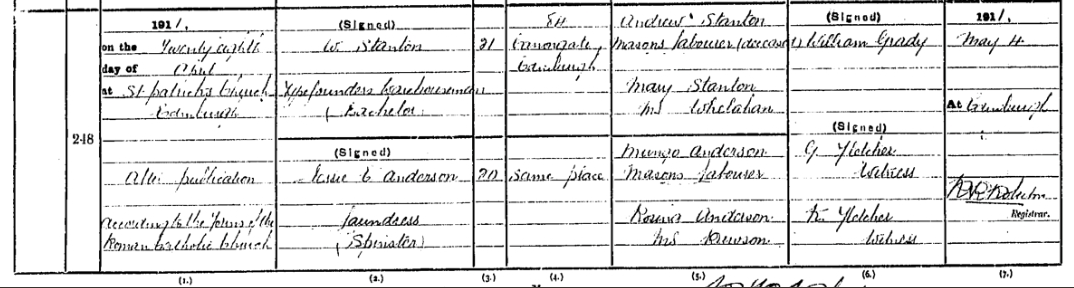 1911,
on the Twenty eighth
day of April
at St Patrick's Church
Edinburgh
After publication
according to the forms of the
Roman Catholic Church
(1.)
218
(Signed)
W. Stanton
Typefounders Warehouseman
(Bachelor)
(Signed)
Jessie C Anderson
Laundress
(Spinster)
(2.)
21
20
(3.)
Canongate,
Edinburgh
same place
(4.)
Andrew Stanton
Masons Labourer (deceased)
Mary Stanton
MS Whelahan
Mungo Anderson
Masons Labourer
Anderson
MS
(5.)
(Signed)
William Grady
(Signed)
G. Fletcher
Witness
K. Fletcher
Witness
(6.)
1911,
May 4
At Edinburgh
Registrar.
(7.)